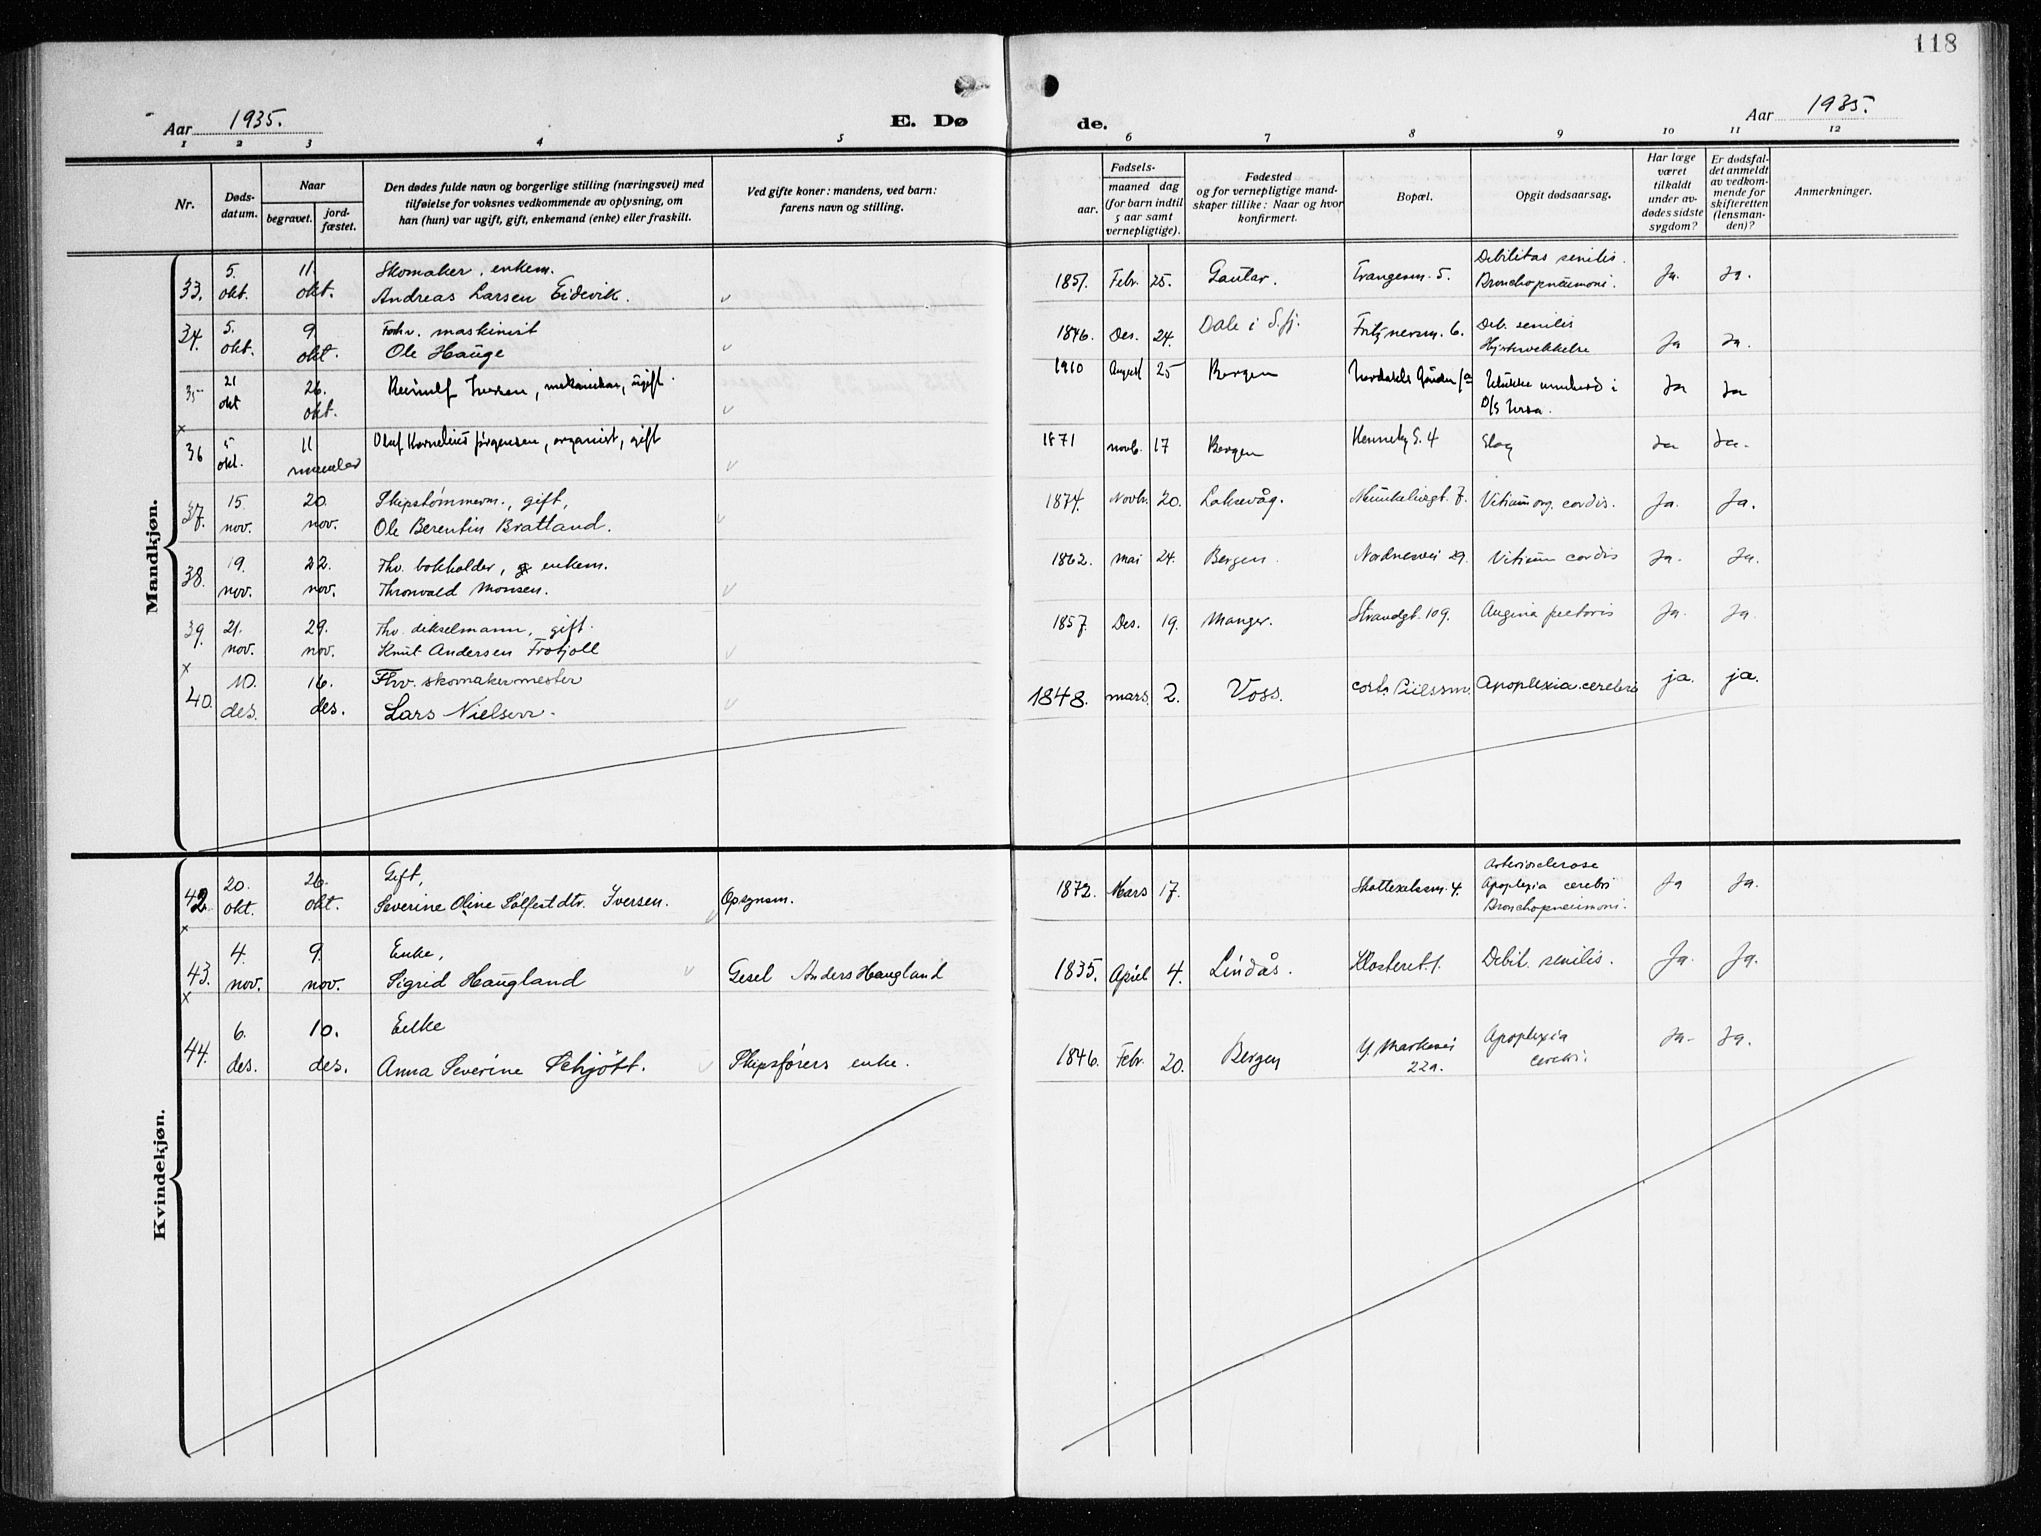 118
Aar 1935. E. Dø de. Aar 1935.
1 2 3 4 5 6 7 8 9 10 11 12
Nr.
Døds-
datum.
Naar
begravet.
jord-
fæstet.
Den dødes fulde navn og borgerlige stilling (næringsvei) med
tilføielse for voksnes vedkommende av oplysning, om
han (hun) var ugift, gift, enkemand (enke) eller fraskilt.
Ved gifte koner: mandens, ved barn:
farens navn og stilling.
Fødsels-
aar.
maaned dag
(for barn indtil
5 aar samt
vernepligtige).
Fødested
og for vernepligtige mand-
skaper tillike: Naar og hvor
konfirmert.
Bopæl.
Opgit dødsaarsag.
Har læge
været
tilkaldt
under av-
dødes sidste
sygdom?
Er dødsfal-
det anmeldt
av vedkom-
mende for
skifteretten
(lensman-
den)?
Anmerkninger.
Mandkjøn.
33. 5. okt. 11. okt. Skomaker, enkem.
Andreas Larsen Eidevik. 1851. Febr. 25. Gaular. 5. Debilitas senilis.
Bronchopneumoni. Ja. Ja.
34. 5. okt. 9. okt. Forhv. maskinist
Ole Hauge 1846. Des. 24. Dale i S.fj. Fritznersm. 6. Deb. senilis
Ja Ja.
35 21 okt 26. okt. Iversen, mekaniker, ugift. 1910 August 25 Bergen i
D/S Ursa. Ja Ja
36 5 okt. 11 Oluf Kornelius Jørgensen, organist, gift 1871 novb. 17 Bergen 4 Slag Ja Ja.
37. 15 nov. 20. nov. Skipstømmerm., gift,
Ole Berentin Bratland. 1874. Novbr. 20. Laksevåg. 7. Vitium org. cordis. Ja. Ja.
38. 19. nov. 22. nov. Fhv. bokholder, enkem.
Thorvald Monsen. 1862. Mai 24. Bergen. Nordnesvei 29. Vitium cordis Ja. Ja.
39. 21. nov. 29. nov. Fhv. dikselmann, gift.
Knut Andersen 1857. Des. 19. Manger. Strandgt. 109. Angina pectoris Ja. Ja.
x
40. 10. des. 16. des. Fhv. skomakermester
Lars Nielsen. 1848. mars. 2. Voss. Apoplexia cerebri ja. ja.
Kvindekjøn.
42 20. okt. 26. okt. Gift,
Severine Oline Solfestdtr. Iversen. Opsynsm. 1872. Mars 17. 4. Arteriosclerose
Apoplexia cerebri
Bronchopneumoni. Ja Ja.
x
43. 4. nov. 9. nov. Enke,
Sigrid Haugland Gesel Anders Haugland 1835. April 4. Lindås. Klosteret 1. Debil. senilis. Ja. Ja.
x
44. 6. des. 10. des. Enke
Anna Severine Schjøtt. Skipsførers enke. 1846. Febr. 20. Bergen Y. Markevei
22a. Apoplexia
cerebri Ja. Ja.